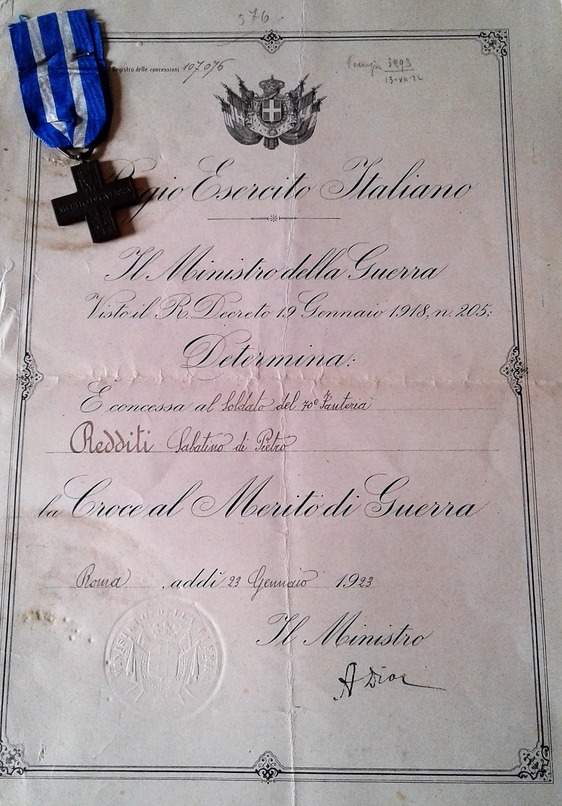 976
Registro delle concessioni 107076
3293
13-VII-22
Regio Esercito Italiano
Il Ministro della Guerra
Visto il R. Decreto 19 Gennaio 1918, n. 205;
Determina:
È concessa al Soldato del 70° Fanteria
Redditi Sabatino di Pietro
la Croce al Merito di Guerra
Roma, addì 23 Gennaio 1923
Il Ministro
A Diaz
MINISTERO DELLA GUERRA